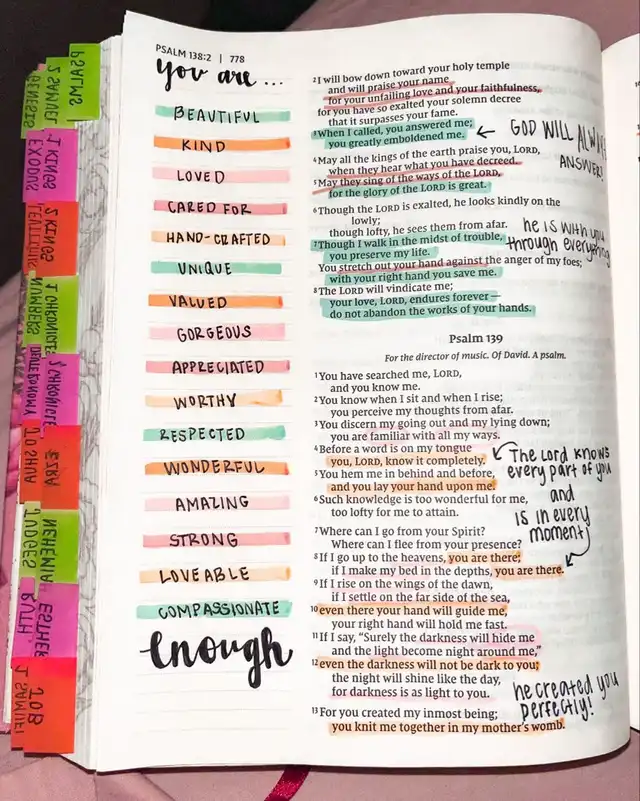 PSALM 138:2 | 778
you are ...
BEAUTIFUL
KIND
LOVED
CARED FOR
HAND-CRAFTED
UNIQUE
VALUED
GORGEOUS
APPRECIATED
WORTHY
RESPECTED
WONDERFUL
AMAZING
STRONG
LOVEABLE
COMPASSIONATE
Enough
2 I will bow down toward your holy temple
and will praise your name
for your unfailing love and your faithfulness,
for you have so exalted your solemn decree
that it surpasses your fame.
3 When I called, you answered me;
you greatly emboldened me.
GOD WILL ALWAYS
ANSWER!
4 May all the kings of the earth praise you, LORD,
when they hear what you have decreed.
5 May they sing of the ways of the LORD,
for the glory of the LORD is great.
6 Though the LORD is exalted, he looks kindly on the
lowly;
though lofty, he sees them from afar.
7 Though I walk in the midst of trouble,
you preserve my life.
he is with you
through everything
You stretch out your hand against the anger of my foes;
with your right hand you save me.
8 The LORD will vindicate me;
your love, LORD, endures forever—
do not abandon the works of your hands.
Psalm 139
For the director of music. Of David. A psalm.
1 You have searched me, LORD,
and you know me.
2 You know when I sit and when I rise;
you perceive my thoughts from afar.
3 You discern my going out and my lying down;
you are familiar with all my ways.
4 Before a word is on my tongue
you, LORD, know it completely.
5 You hem me in behind and before,
and you lay your hand upon me.
6 Such knowledge is too wonderful for me,
too lofty for me to attain.
The Lord knows
every part of you
and
is in every
moment
7 Where can I go from your Spirit?
Where can I flee from your presence?
8 If I go up to the heavens, you are there;
if I make my bed in the depths, you are there.
9 If I rise on the wings of the dawn,
if I settle on the far side of the sea,
10 even there your hand will guide me,
your right hand will hold me fast.
11 If I say, “Surely the darkness will hide me
and the light become night around me,”
12 even the darkness will not be dark to you;
the night will shine like the day,
for darkness is as light to you.
he created you
perfectly!
13 For you created my inmost being;
you knit me together in my mother’s womb.
PSALMS
2 SAMUEL
GENESIS
1 KINGS
EXODUS
2 KINGS
LEVITICUS
1 CHRONICLES
NUMBERS
2 CHRONICLES
DEUTERONOMY
EZRA
JOSHUA
NEHEMIAH
JUDGES
ESTHER
RUTH
JOB
1 SAMUEL